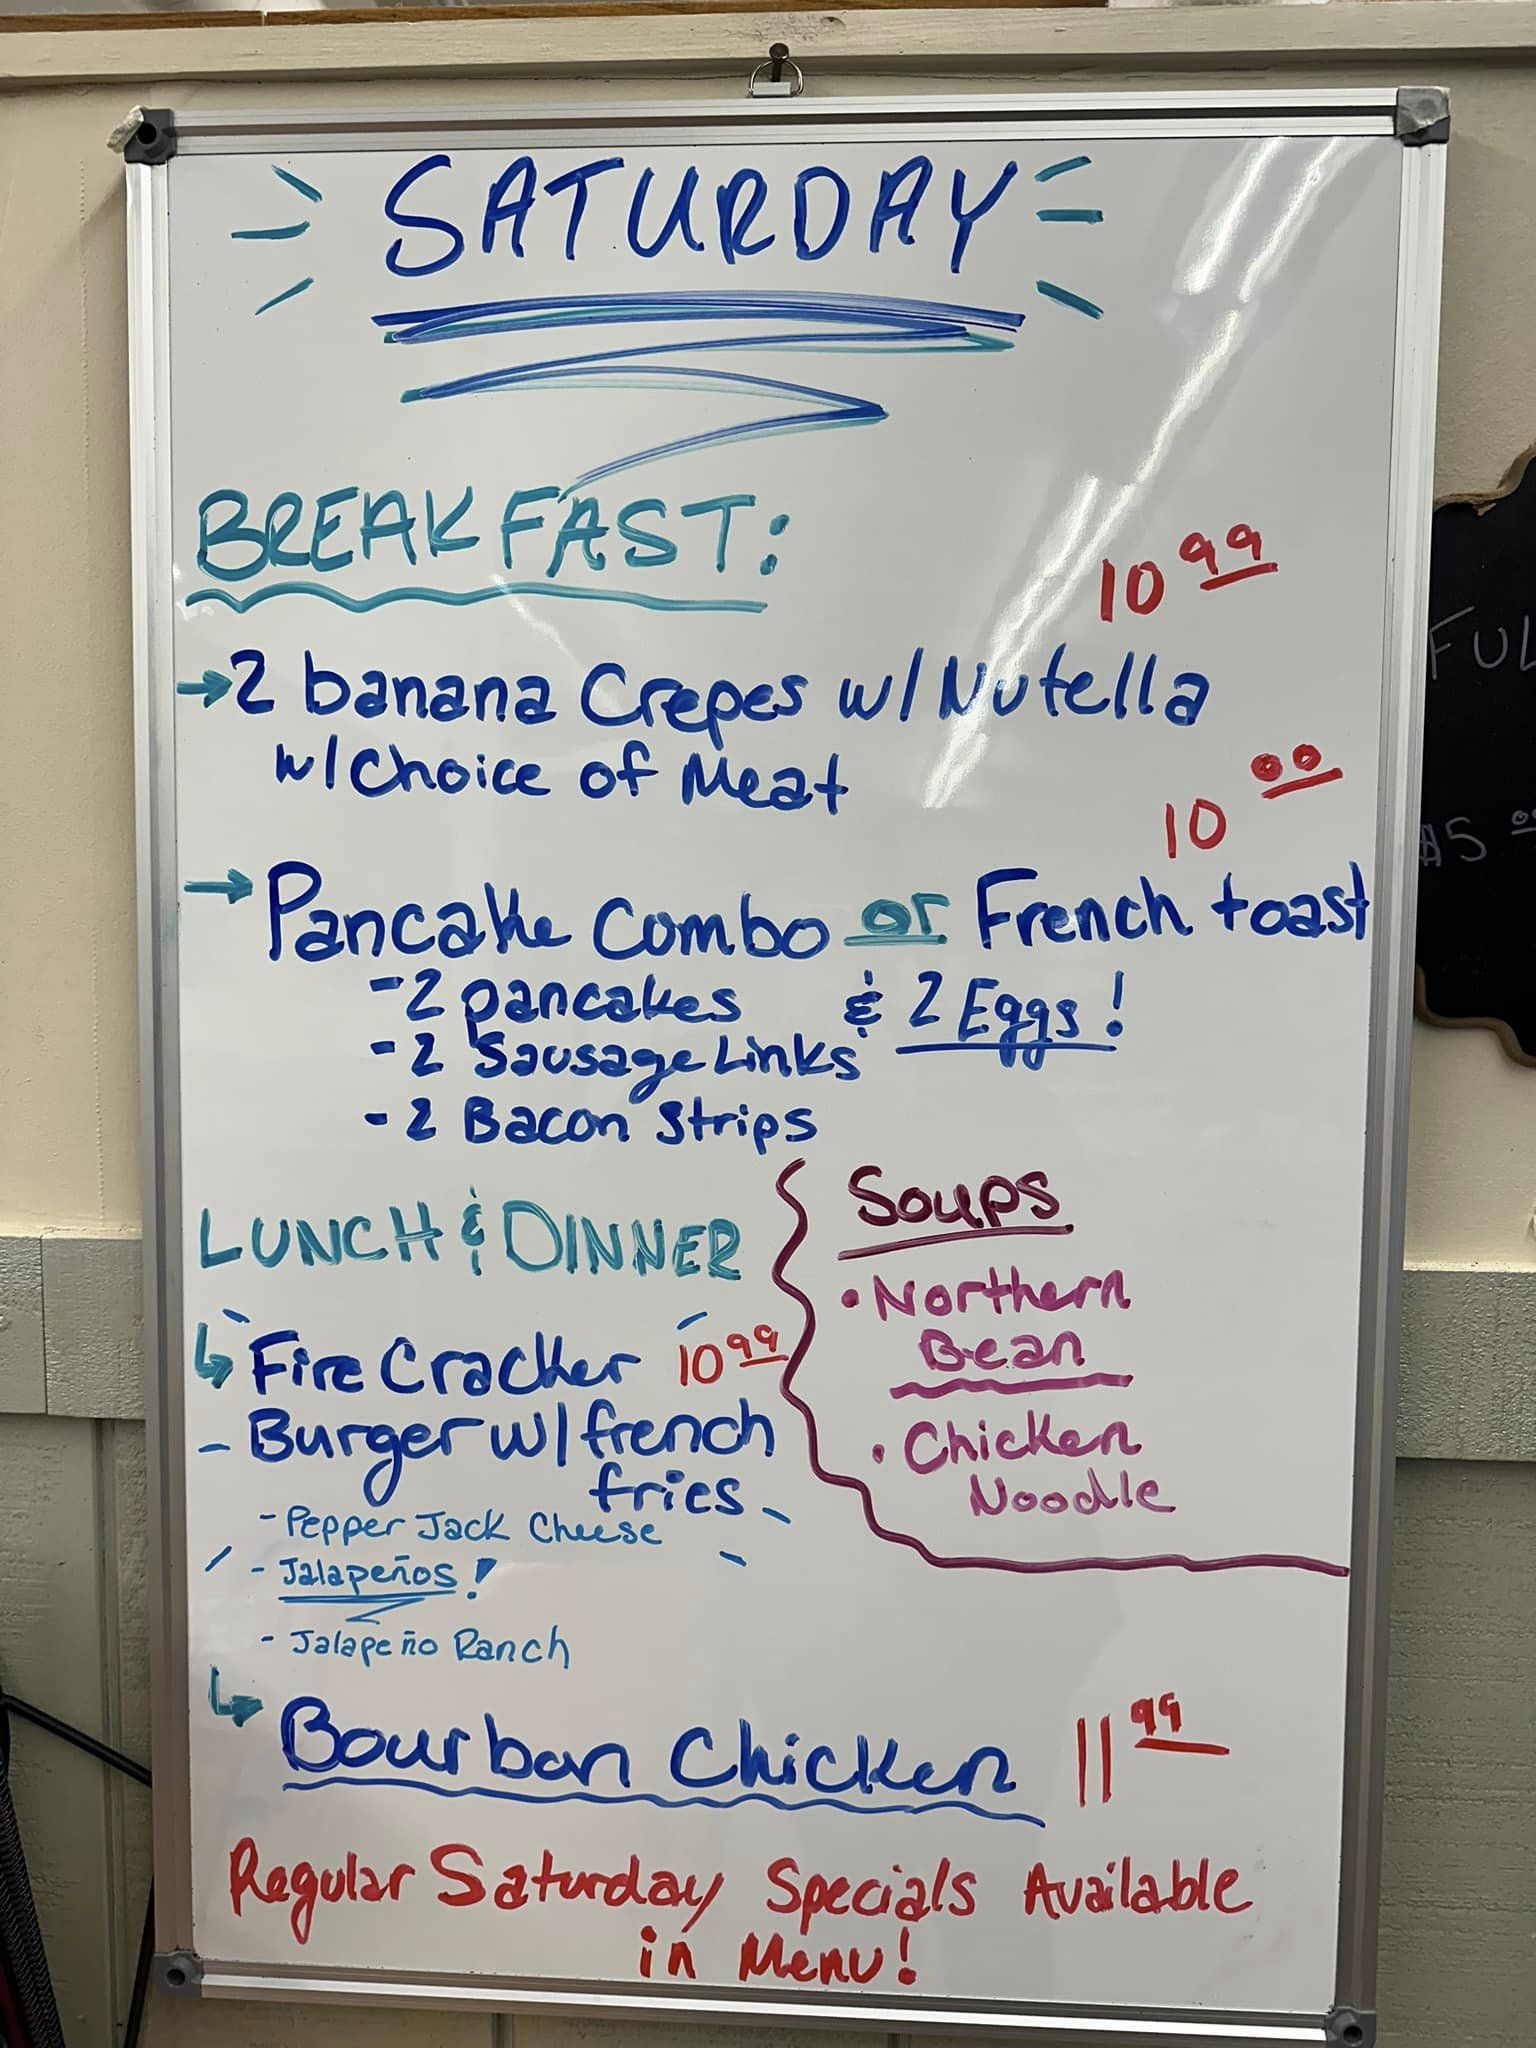 SATURDAY
BREAKFAST:
10 99
→ 2 banana Crepes w/ Nutella
w/ Choice of Meat
10 00
→ Pancake Combo or French toast
- 2 pancakes & 2 Eggs!
- 2 Sausage Links
- 2 Bacon Strips
LUNCH & DINNER
Fire Cracker 10 99
Burger w/ french
fries
- Pepper Jack Cheese
- Jalapeños!
- Jalapeño Ranch
Soups
• Northern
Bean
• Chicken
Noodle
Bourban Chicken 11 99
Regular Saturday Specials Available
in Menu!
FUL
$5 00